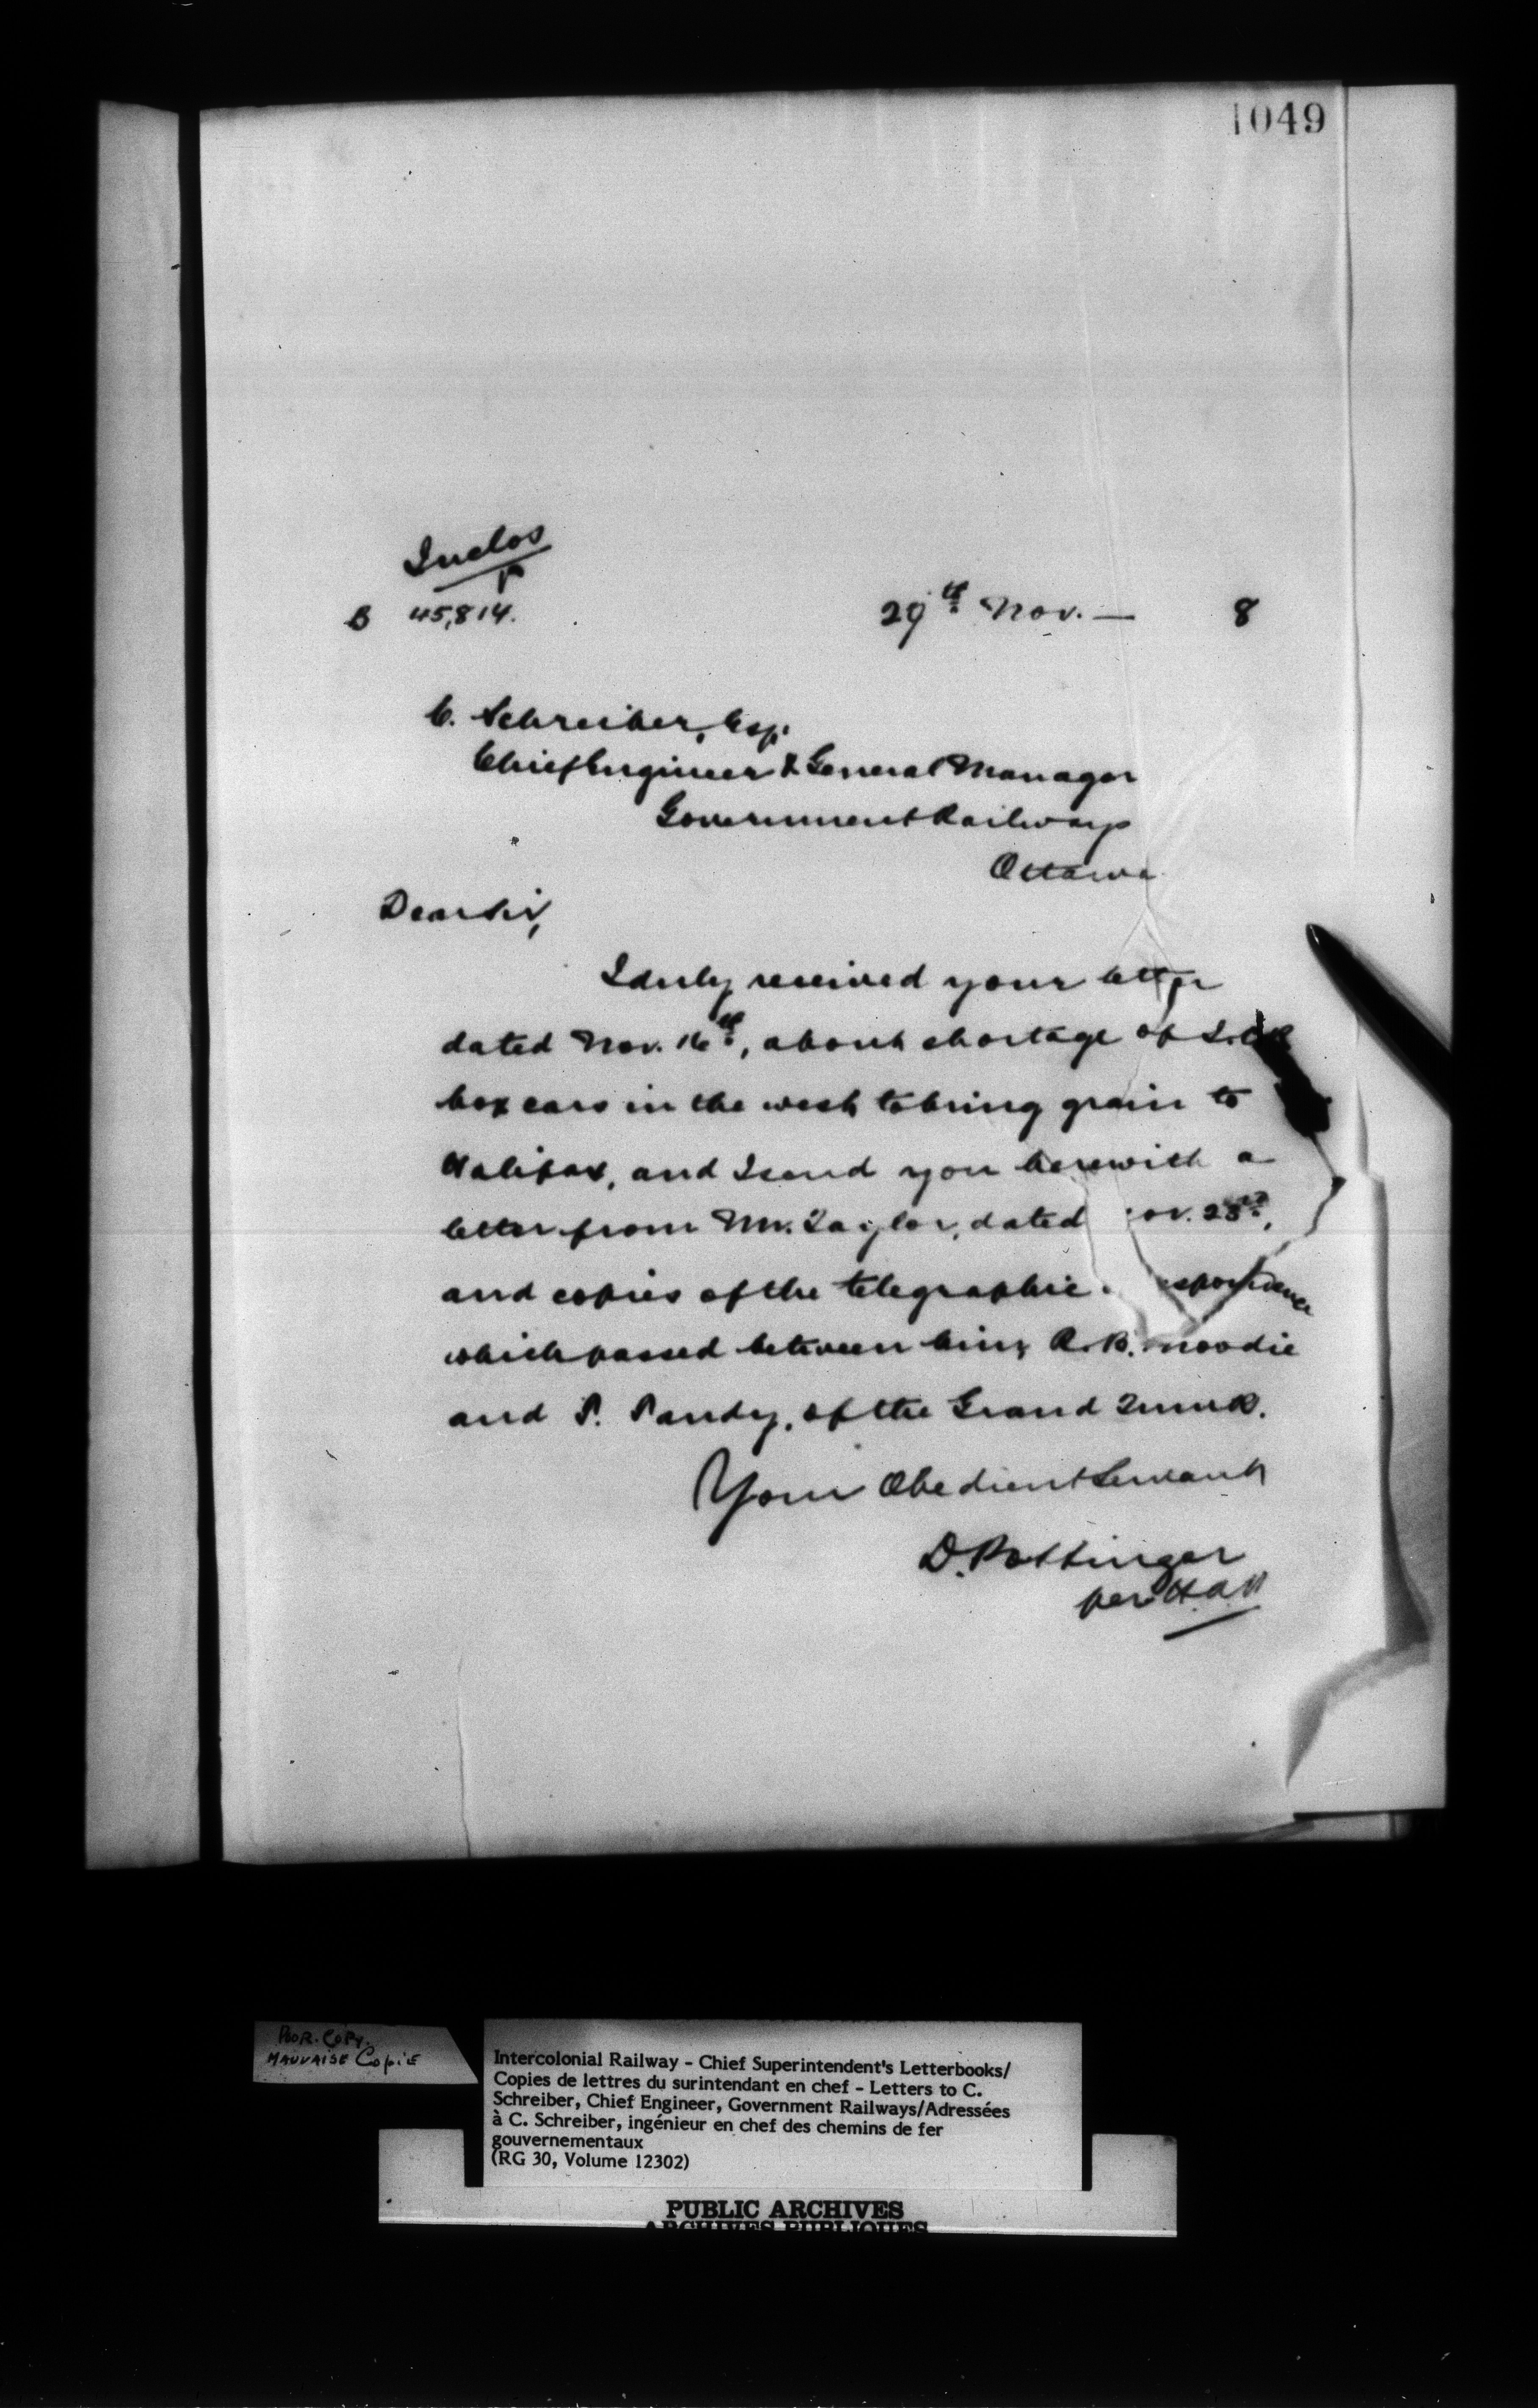 1049
Inclos
B 45,814.
29th Nov. — 8
C. Schreiber, Esq.
Chief Engineer & General Manager
Government Railways
Ottawa
Dear Sir,
I duly received your letter
dated Nov. 16th, about shortage of I.C.R
box cars in the west to bring grain to
Halifax, and I send you herewith a
letter from Mr. Taylor, dated ov. 23rd,
and copies of the telegraphic espondence
which passed between him, R.B. Moodie
and P. Pandy, of the Grand Trunk.
Your Obedient Servant
D. Pottinger
per
POOR. COPY.
MAUVAISE COPIE
Intercolonial Railway - Chief Superintendent's Letterbooks/
Copies de lettres du surintendant en chef - Letters to C.
Schreiber, Chief Engineer, Government Railways/Adressées
à C. Schreiber, ingénieur en chef des chemins de fer
gouvernementaux
(RG 30, Volume 12302)
PUBLIC ARCHIVES
ARCHIVES PUBLIQUES